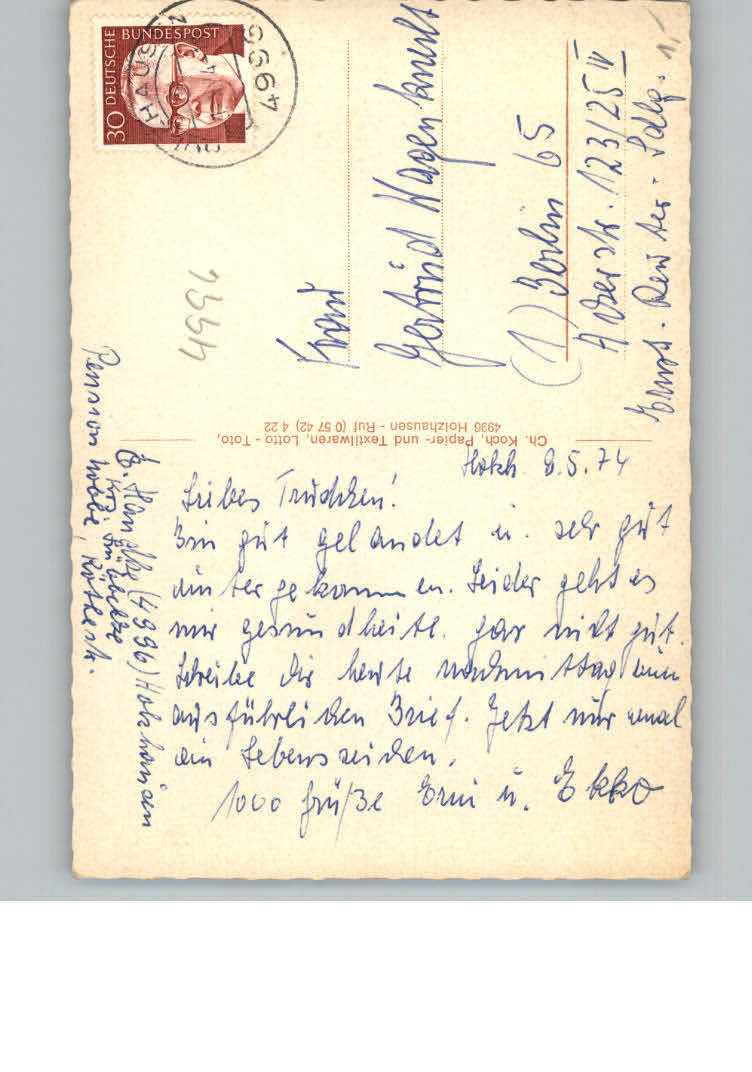 30 DEUTSCHE BUNDESPOST
4994
4991
Frau
Gertrud Wagenknecht
(1) Berlin 65
Afrer str. 123/25 IV
Ernst-Reuter-Sdlg.
Ch. Koch, Papier- und Textilwaren, Lotto - Toto,
4996 Holzhausen - Ruf (0 57 42) 4 22
Holzh. 8.5.74
Liebes Trudchen!
Bin gut gelandet u. sehr gut
untergekommen. Leider geht es
mir gesundheitl. gar nicht gut.
Schreibe Dir heute nachmittag einen
ausführlichen Brief. Jetzt nur 1mal
ein Lebenszeichen.
1000 Grüße Erni u. Ekko
E. Handke (4996) Holzhausen
Krs. Lübbecke
Pension